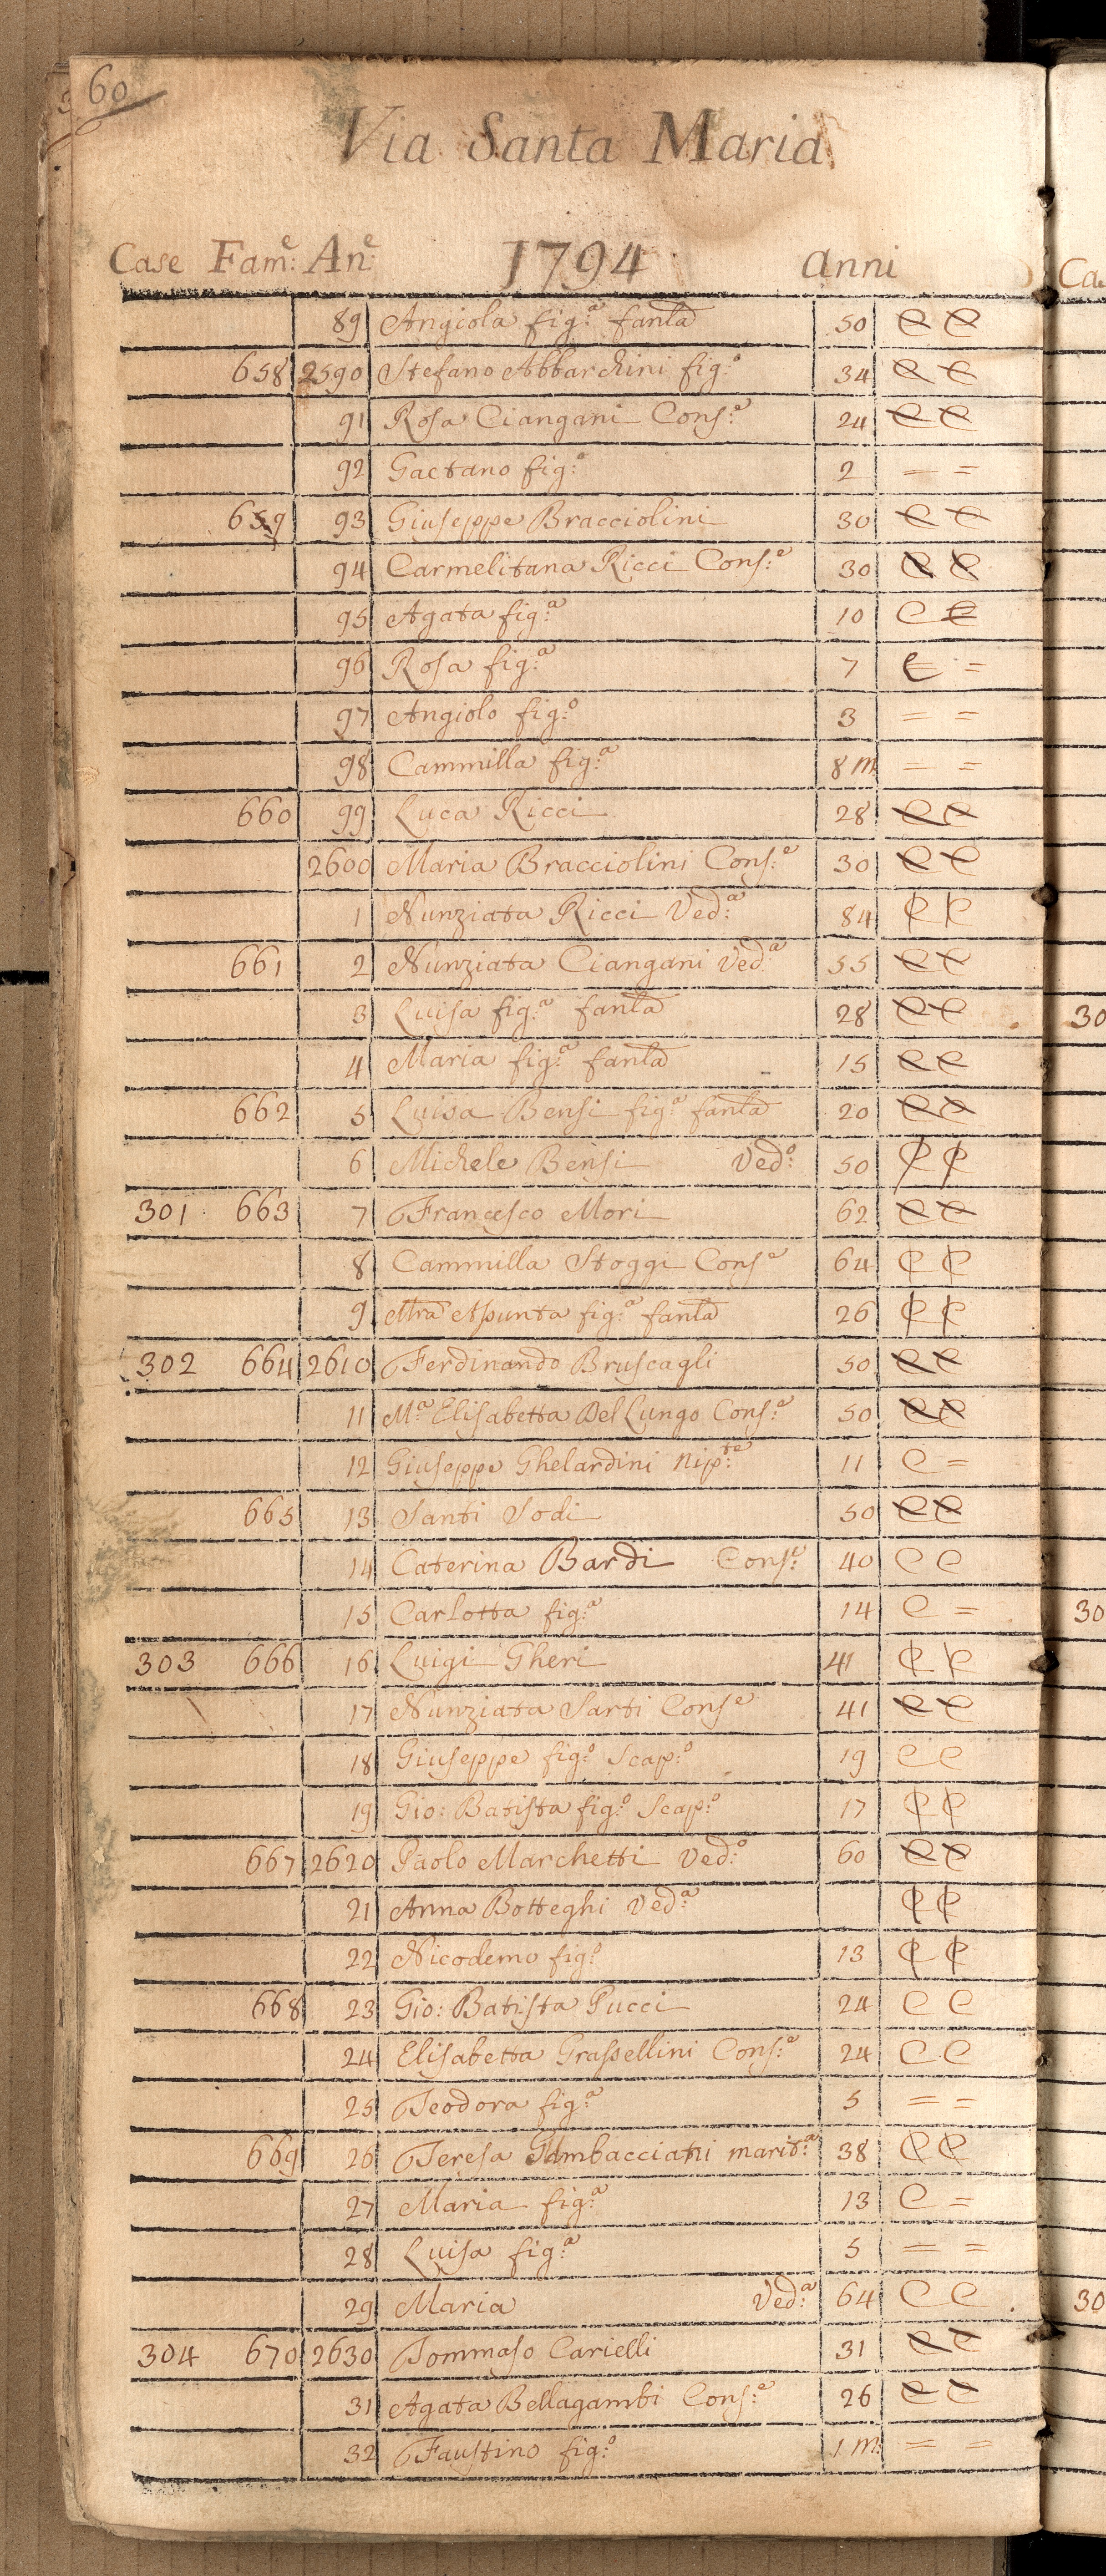 60
Via Santa Maria
Case Fam:e An:e 1794 anni
89 Angiola fig:a fanla 50 C C
658 2590 Stefano Abbarchini fig:o 34 C C
91 Rosa Ciangani Cons:e 24 C C
92 Gaetano fig:o 2 = =
659 93 Giuseppe Bracciolini 30 C C
94 Carmelitana Ricci Cons:e 30 C C
95 Agata fig:a 10 C C
96 Rosa fig:a 7 C =
97 Angiolo fig:o 3 = =
98 Cammilla fig:a 8 m = =
660 99 Luca Ricci 28 C C
2600 Maria Bracciolini Cons:e 30 C C
1 Nunziata Ricci Ved:a 84 C C
661 2 Nunziata Ciangani Ved:a 55 C C
3 Luisa fig:a fanla 28 C C
4 Maria fig:a fanla 15 C C
662 5 Luisa Bensi fig:a fanla 20 C C
6 Michele Bensi Ved:o 50 C C
301 663 7 Francesco Mori 62 C C
8 Cammilla Stoggi Cons:e 64 C C
9 Mra Asunta fig:a fanla 26 C C
302 664 2610 Ferdinando Bruscagli 50 C C
11 M:a Elisabetta Del Lungo Cons:e 50 C C
12 Giuseppe Ghelardini nip:te 11 C =
665 13 Santi Sodi 50 C C
14 Caterina Bardi Cons:e 40 C C
15 Carlotta fig:a 14 C =
303 666 16 Luigi Gheri 41 C C
17 Nunziata Sarti Cons:e 41 C C
18 Giuseppe fig:o Scap:o 19 C C
19 Gio: Batista fig:o Scap:o 17 C C
667 2620 Paolo Marchetti Ved:o 60 C C
21 Anna Botteghi Ved:a C C
22 Nicodemo fig:o 13 C C
668 23 Gio: Batista Pucci 24 C C
24 Elisabetta Grassellini Cons:e 24 C C
25 Teodora fig:a 5 = =
669 26 Teresa Gambacciani marit:a 38 C C
27 Maria fig:a 13 C =
28 Luisa fig:a 5 = =
29 Maria Ved:a 64 C C
304 670 2630 Tommaso Carielli 31 C C
31 Agata Bellagambi Cons:e 26 C C
32 Faustino fig:o 1 m: = =
Ca
30
30
30